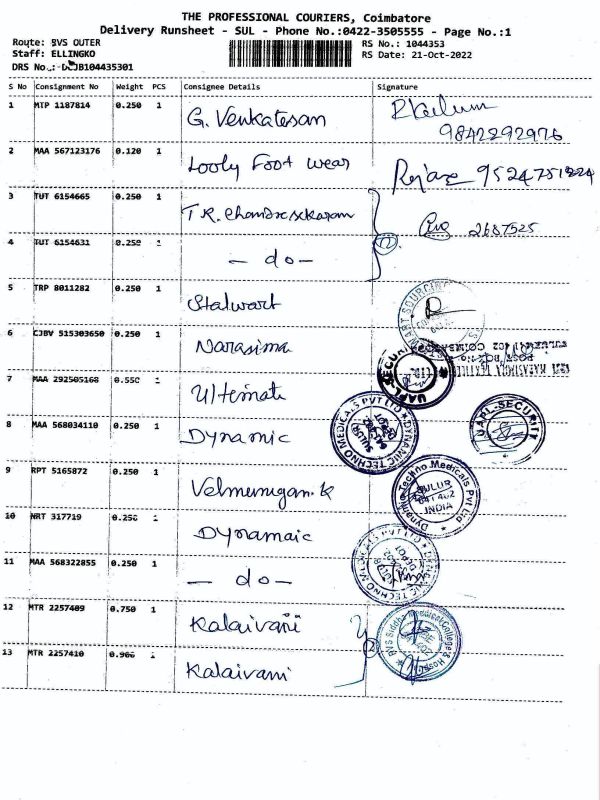 THE PROFESSIONAL COURIERS, Coimbatore
Delivery Runsheet - SUL - Phone No.:0422-3505555 - Page No.:1
Route: BVS OUTER
RS No.: 1044353
Staff: ELLINGKO
RS Date: 21-Oct-2022
DRS No.: B104435301
S No Consignment No Weight PCS Consignee Details Signature
1 MTP 1187814 0.250 1 G. Venkatesan
9842292976
2 MAA 567123176 0.120 1 Looly Foot wear 9524751224
3 TUT 6154665 0.250 1 T.R. Chandrasekaram 2687525
4 TUT 6154631 0.250 1 - do -
5 TRP 8011282 0.250 1 Stalwart
6 CJBV 515303650 0.250 1 Narasima
7 MAA 292505168 0.550 1 Ultimate
UAPL-SECURITY
8 MAA 568034110 0.250 1 Dynamic
DYNAMIC TECHNO MEDICALS PVT LTD
9 RPT 5165872 0.250 1 Velmurugan.K
Dynamic Techno Medicals Pvt Ltd
SULUR
641 402
INDIA
10 NRT 317719 0.250 1 Dynamaic
11 MAA 568322855 0.250 1 - do -
12 MTR 2257409 0.750 1 Kalaivani
13 MTR 2257410 0.900 1 Kalaivani